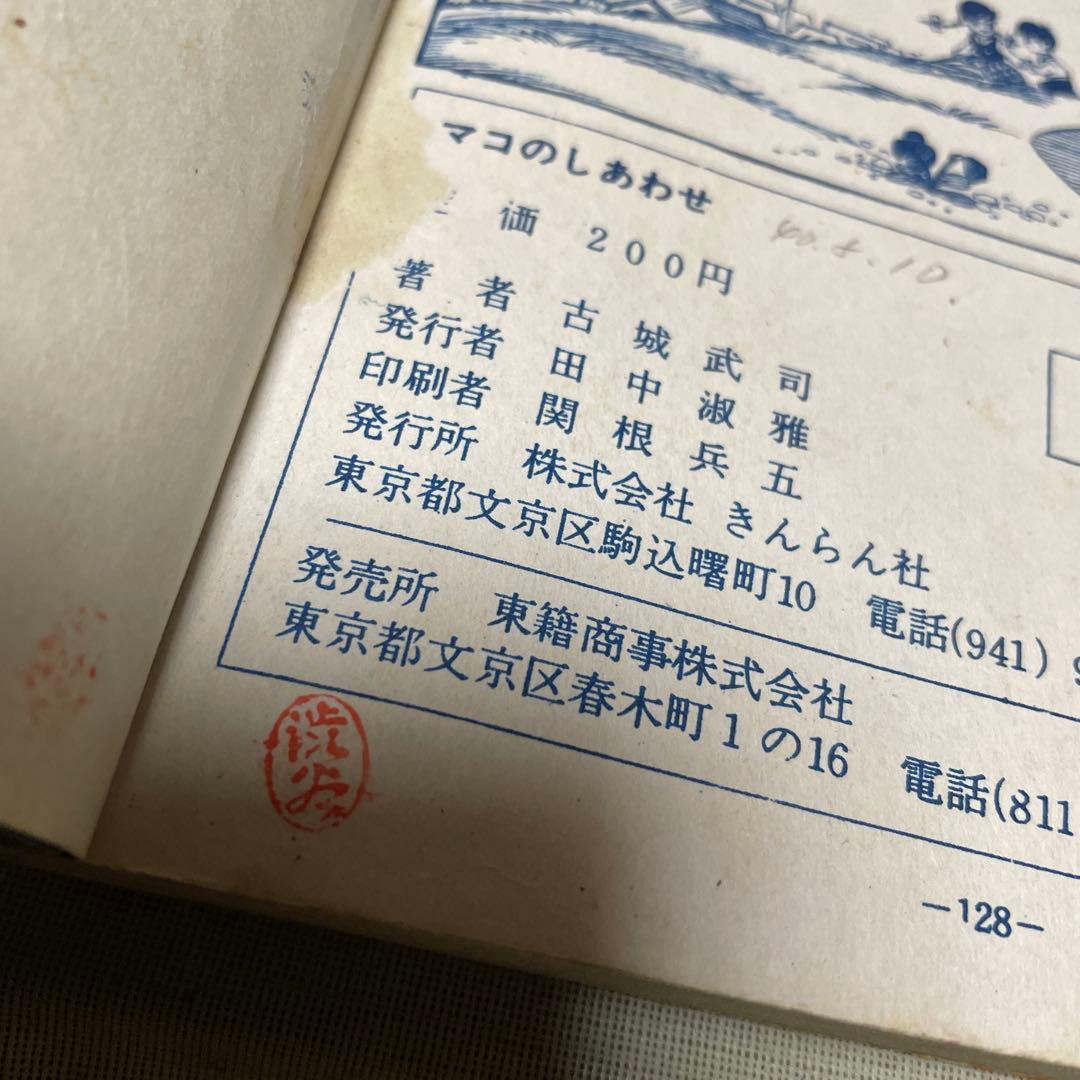 マコのしあわせ
40.8.10.
価 200円
著者 古城武司
発行者 田中淑雅
印刷者 関根兵五
発行所 株式会社 きんらん社
東京都文京区駒込曙町10 電話(941) 9
発売所 東籍商事株式会社
東京都文京区春木町1の16 電話(811
-128-